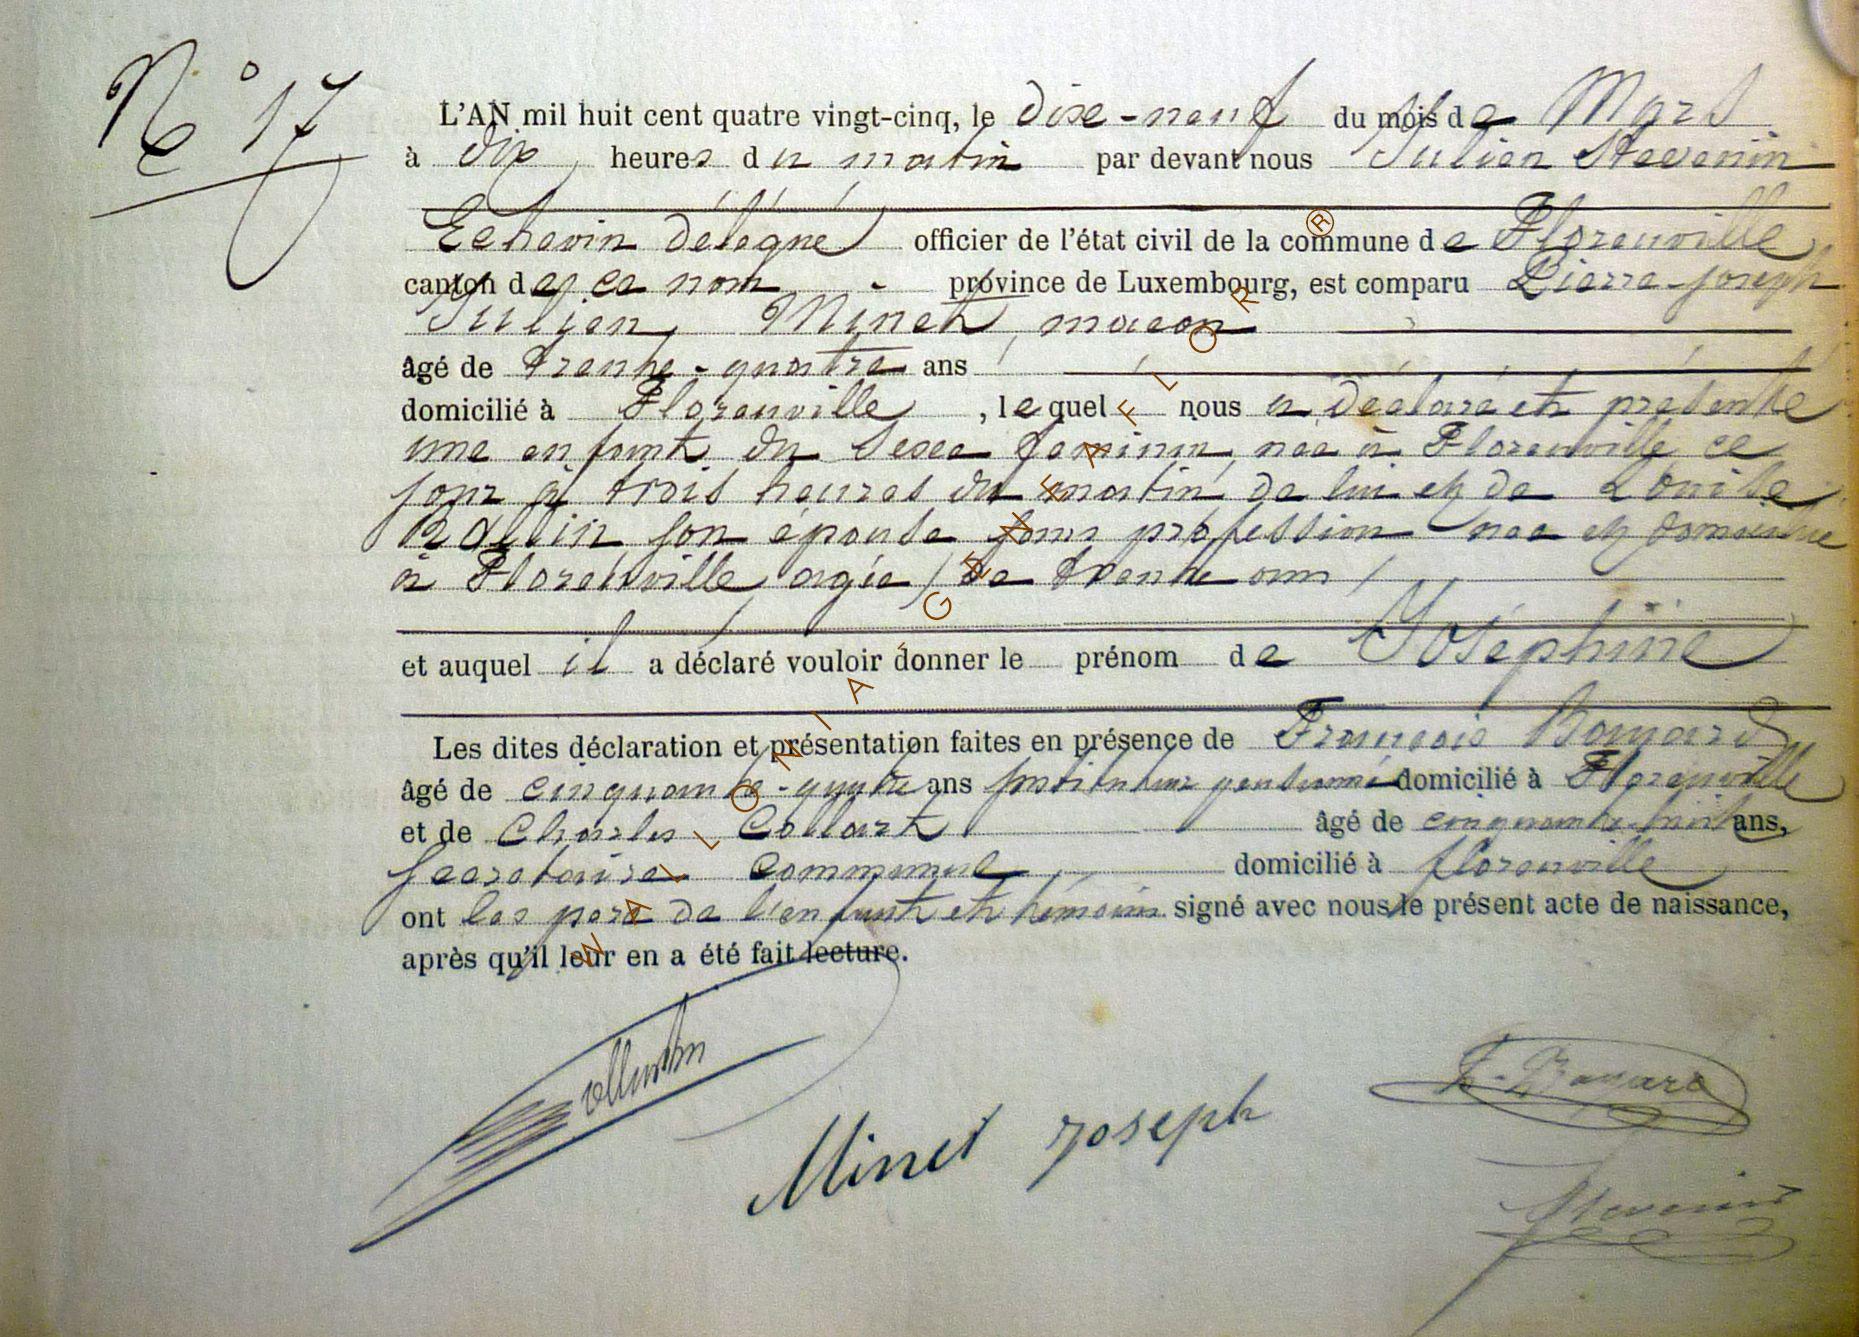 N° 17
L'AN mil huit cent quatre vingt-cinq, le dixe-neuf du mois de Mars
à dix heures du matin par devant nous Julien Stevenin
Echevin délégué officier de l'état civil de la commune de Florenville
canton de ce nom province de Luxembourg, est comparu Pierre-Joseph
Julien Minet, maçon
âgé de trente-quatre ans
domicilié à Florenville, lequel nous a déclaré et présenté
une enfant du sexe féminin, née à Florenville ce
jour à trois heures du matin de lui et de Louise
son épouse sans profession née et domiciliée
à Florenville agée de trente ans
et auquel il a déclaré vouloir donner le prénom de Joséphine
Les dites déclaration et présentation faites en présence de François
âgé de cinquante-quatre ans instituteur pensionné domicilié à Florenville
et de Charles Collart âgé de cinquante-huit ans,
Secretaire communal domicilié à florenville
ont les père de l'enfant et témoins signé avec nous le présent acte de naissance,
après qu'il leur en a été fait lecture.
Minet Joseph
Stevenin
WALLONIA - GENEAFLOR ®